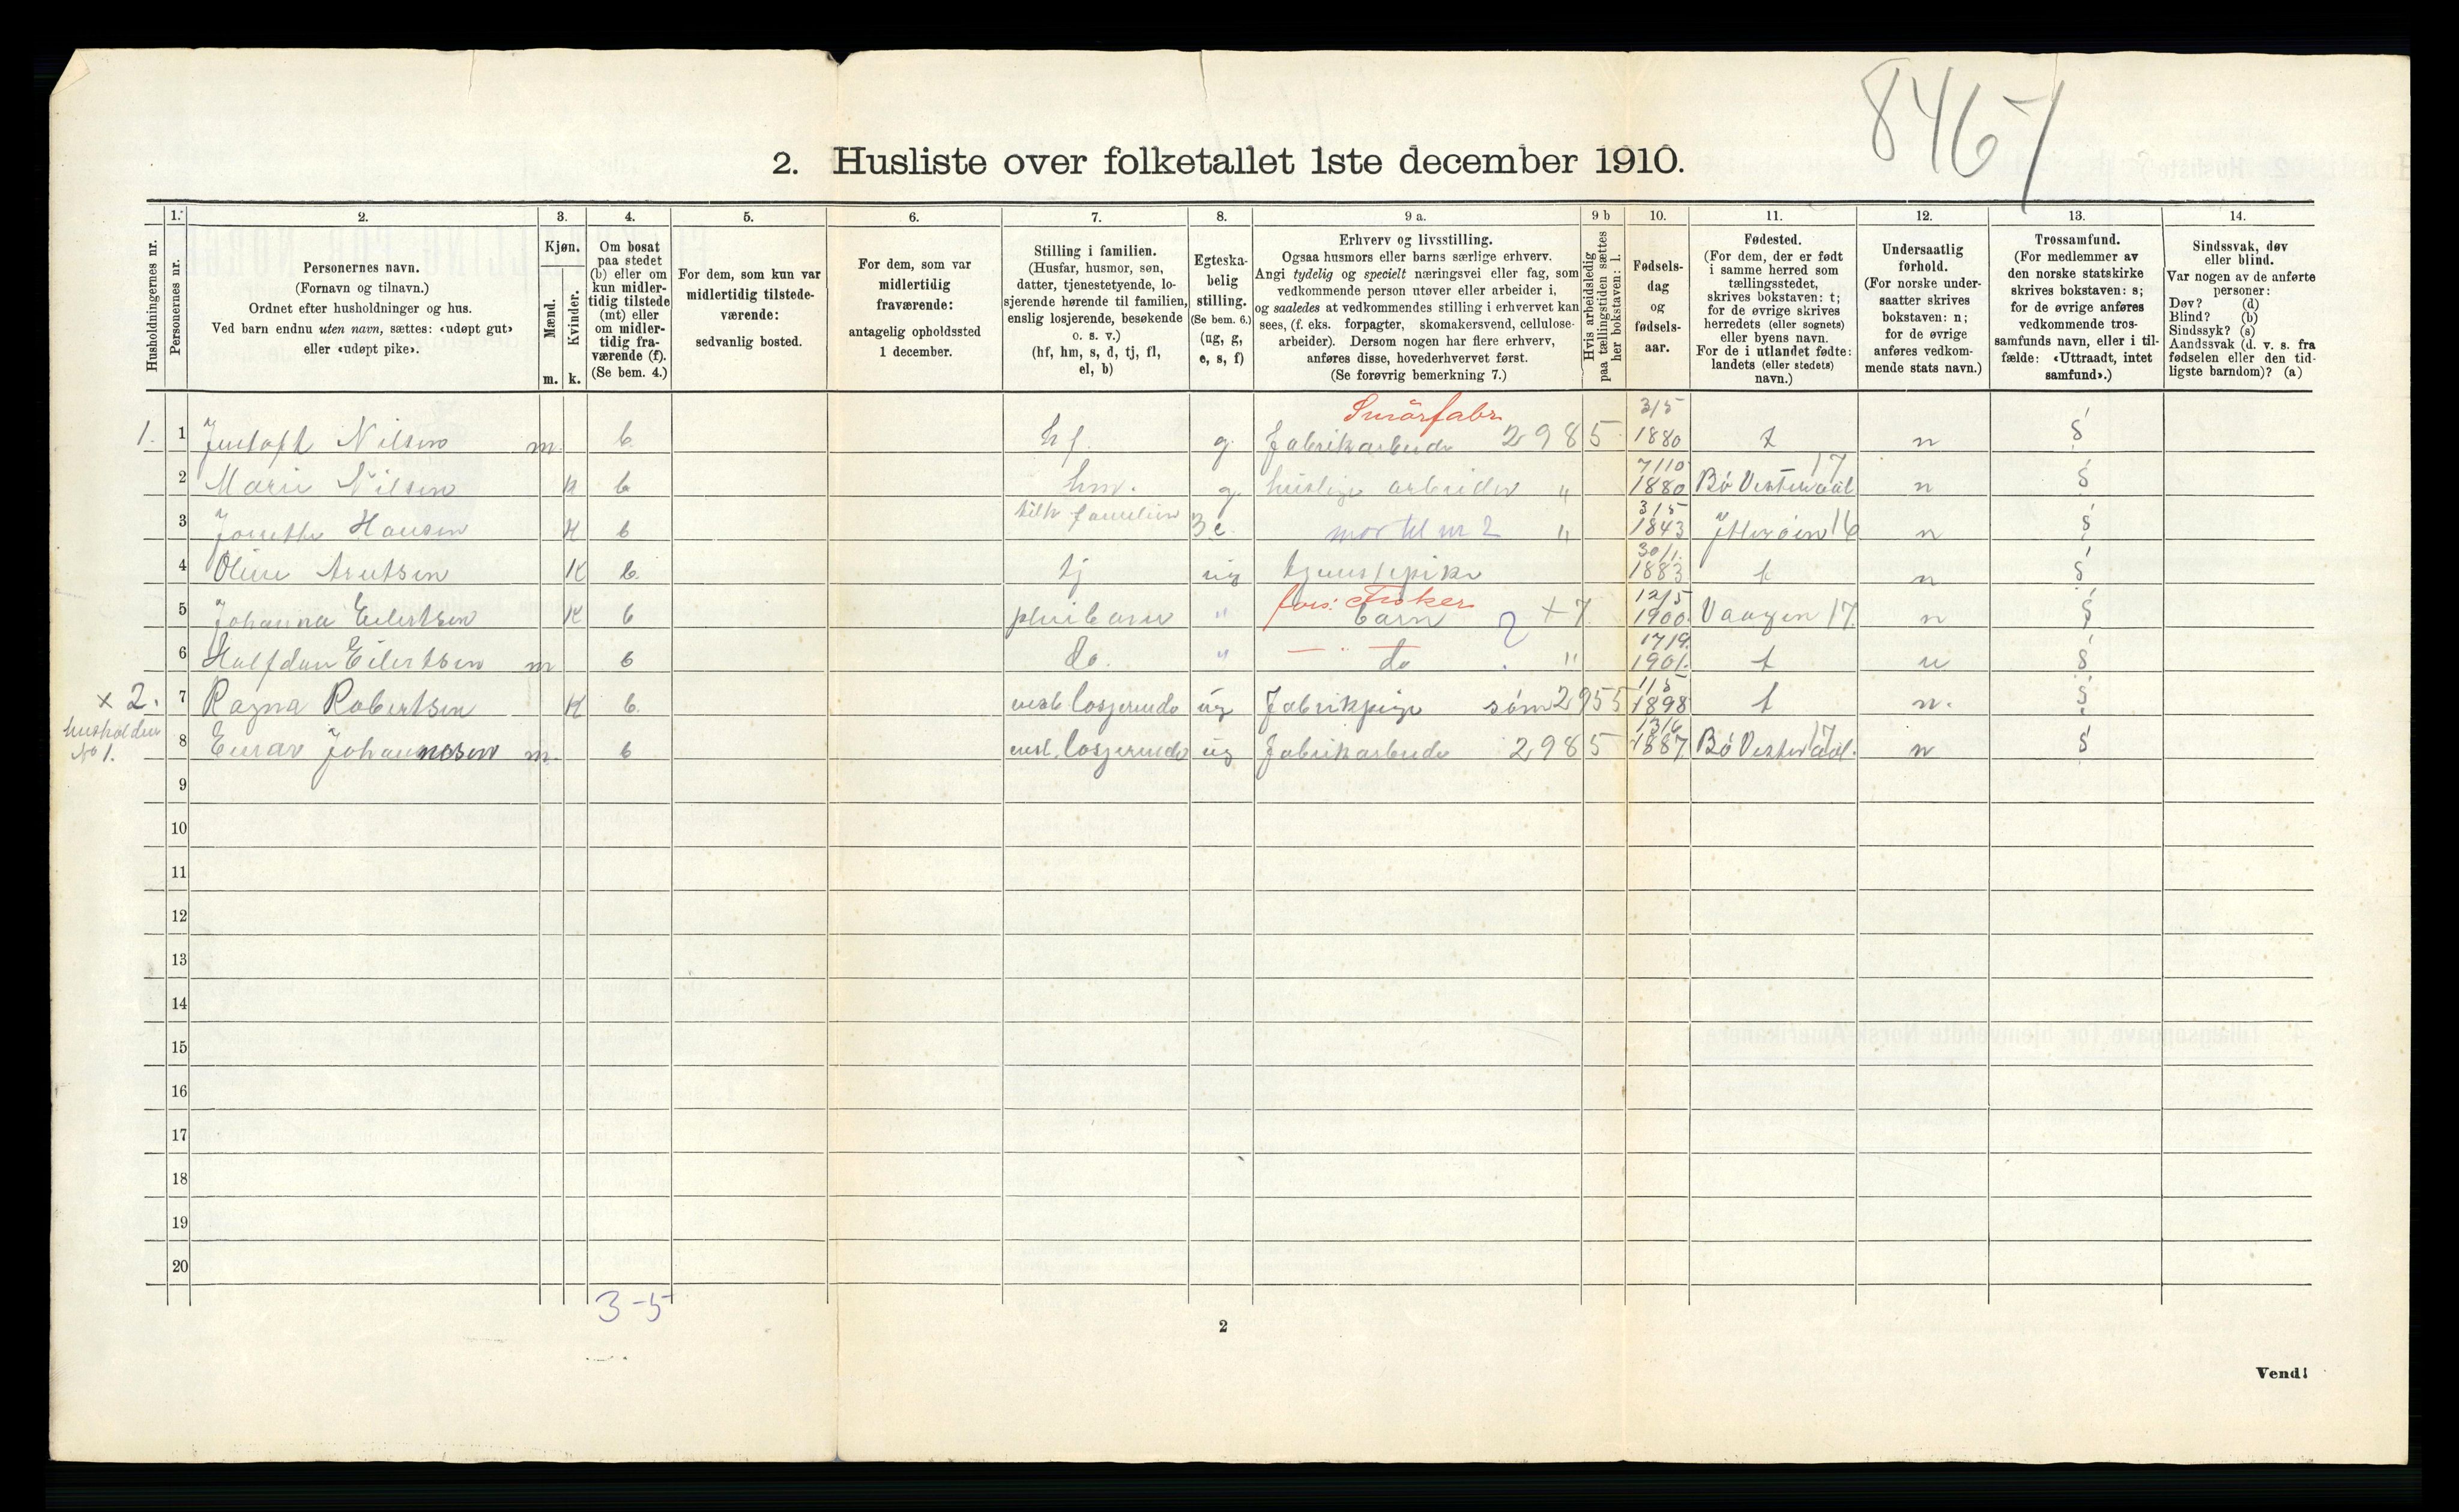 8467
2. Husliste over folketallet 1ste december 1910.
1. 2. 3. 4. 5. 6. 7. 8. 9 a. 9 b 10. 11. 12. 13. 14.
Husholdningernes nr.
Personernes nr.
Personernes navn.
(Fornavn og tilnavn.)
Ordnet efter husholdninger og hus.
Ved barn endnu uten navn, sættes: «udøpt gut»
eller «udøpt pike».
Kjøn.
Mænd.
Kvinder.
m. k.
Om bosat
paa stedet
(b) eller om
kun midler-
tidig tilstede
(mt) eller
om midler-
tidig fra-
værende (f).
(Se bem. 4.)
For dem, som kun var
midlertidig tilstede-
værende:
sedvanlig bosted.
For dem, som var
midlertidig
fraværende:
antagelig opholdssted
1 december.
Stilling i familien.
(Husfar, husmor, søn,
datter, tjenestetyende, lo-
sjerende hørende til familien,
enslig losjerende, besøkende
o. s. v.)
(hf, hm, s, d, tj, fl,
el, b)
Egteska-
belig
stilling.
(Se bem. 6.)
(ug, g,
e, s, f)
Erhverv og livsstilling.
Ogsaa husmors eller barns særlige erhverv.
Angi tydelig og specielt næringsvei eller fag, som
vedkommende person utøver eller arbeider i,
og saaledes at vedkommendes stilling i erhvervet kan
sees, (f. eks. forpagter, skomakersvend, cellulose-
arbeider). Dersom nogen har flere erhverv,
anføres disse, hovederhvervet først.
(Se forøvrig bemerkning 7.)
Hvis arbeidsledig
paa tællingstiden sættes
her bokstaven: l.
Fødsels-
dag
og
fødsels-
aar.
Fødested.
(For dem, der er født
i samme herred som
tællingsstedet,
skrives bokstaven: t;
for de øvrige skrives
herredets (eller sognets)
eller byens navn.
For de i utlandet fødte:
landets (eller stedets)
navn.)
Undersaatlig
forhold.
(For norske under-
saatter skrives
bokstaven: n;
for de øvrige
anføres vedkom-
mende stats navn.)
Trossamfund.
(For medlemmer av
den norske statskirke
skrives bokstaven: s;
for de øvrige anføres
vedkommende tros-
samfunds navn, eller i til-
fælde: «Uttraadt, intet
samfund».)
Sindssvak, døv
eller blind.
Var nogen av de anførte
personer:
Døv? (d)
Blind? (b)
Sindssyk? (s)
Aandssvak (d. v. s. fra
fødselen eller den tid-
ligste barndom)? (a)
Smörfabr. 3/5
1. 1 Nilsen m. b. hf. g. Fabrikarbeide 2985 1880 t n S
7/10 17
2 Marie Nilsen k b hm. g. huslige arbeider " 1880 Bö Vesteraal n S
familien 3/5
3 Hansen K b 3 e. mor til nr 2 " 1843 16 n S
30/1.
4 Oline K b. tj ug tjenestpike 1883 t n S
fors: Fisker 12/5
5 Johanna Eilertsen K b pleibarn " barn x 7 1900 Vaagen 17. n S
17/9.
6 Halfdan Eilertsen m b do. " do " 1901. t n S
1/5
x 2. 7 Ragna Robertsen K b. losjerende ug Fabrikpige söm 2955 1898 t n. S
husholdn
No 1.
13/6 17
8 Einar Johannesen m. b losjerende ug Fabrikarbeide 2985 1887 Bö Vesteraal. n S
9
10
11
12
13
14
15
16
17
18
19
20
3-5
2
Vend!